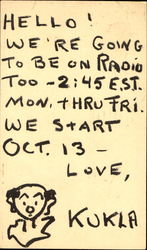 HELLO!
WE'RE GOING
TO BE ON RADIO
TOO - 2:45 EST.
MON. tHRU FRI.
WE StARt
OCT. 13 -
LOVE,
KUKLA